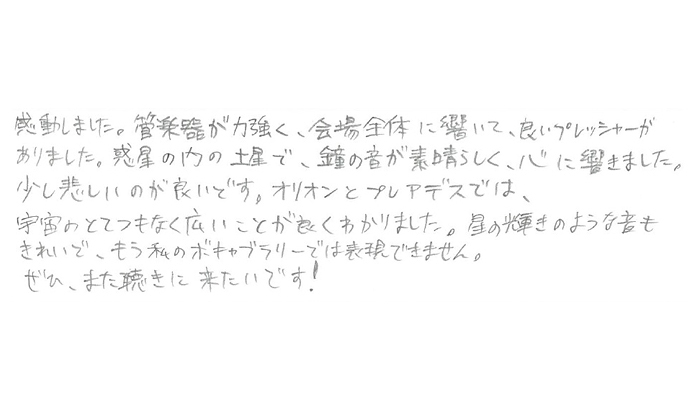 感動しました。管楽器が力強く、会場全体に響いて、良いプレッシャーが
ありました。惑星の内の土星で、鐘の音が素晴らしく、心に響きました。
少し悲しいのが良いです。オリオンとプレアデスでは、
宇宙のとてつもなく広いことが良くわかりました。星の輝きのような音も
きれいで、もう私のボキャブラリーでは表現できません。
ぜひ、また聴きに来たいです!